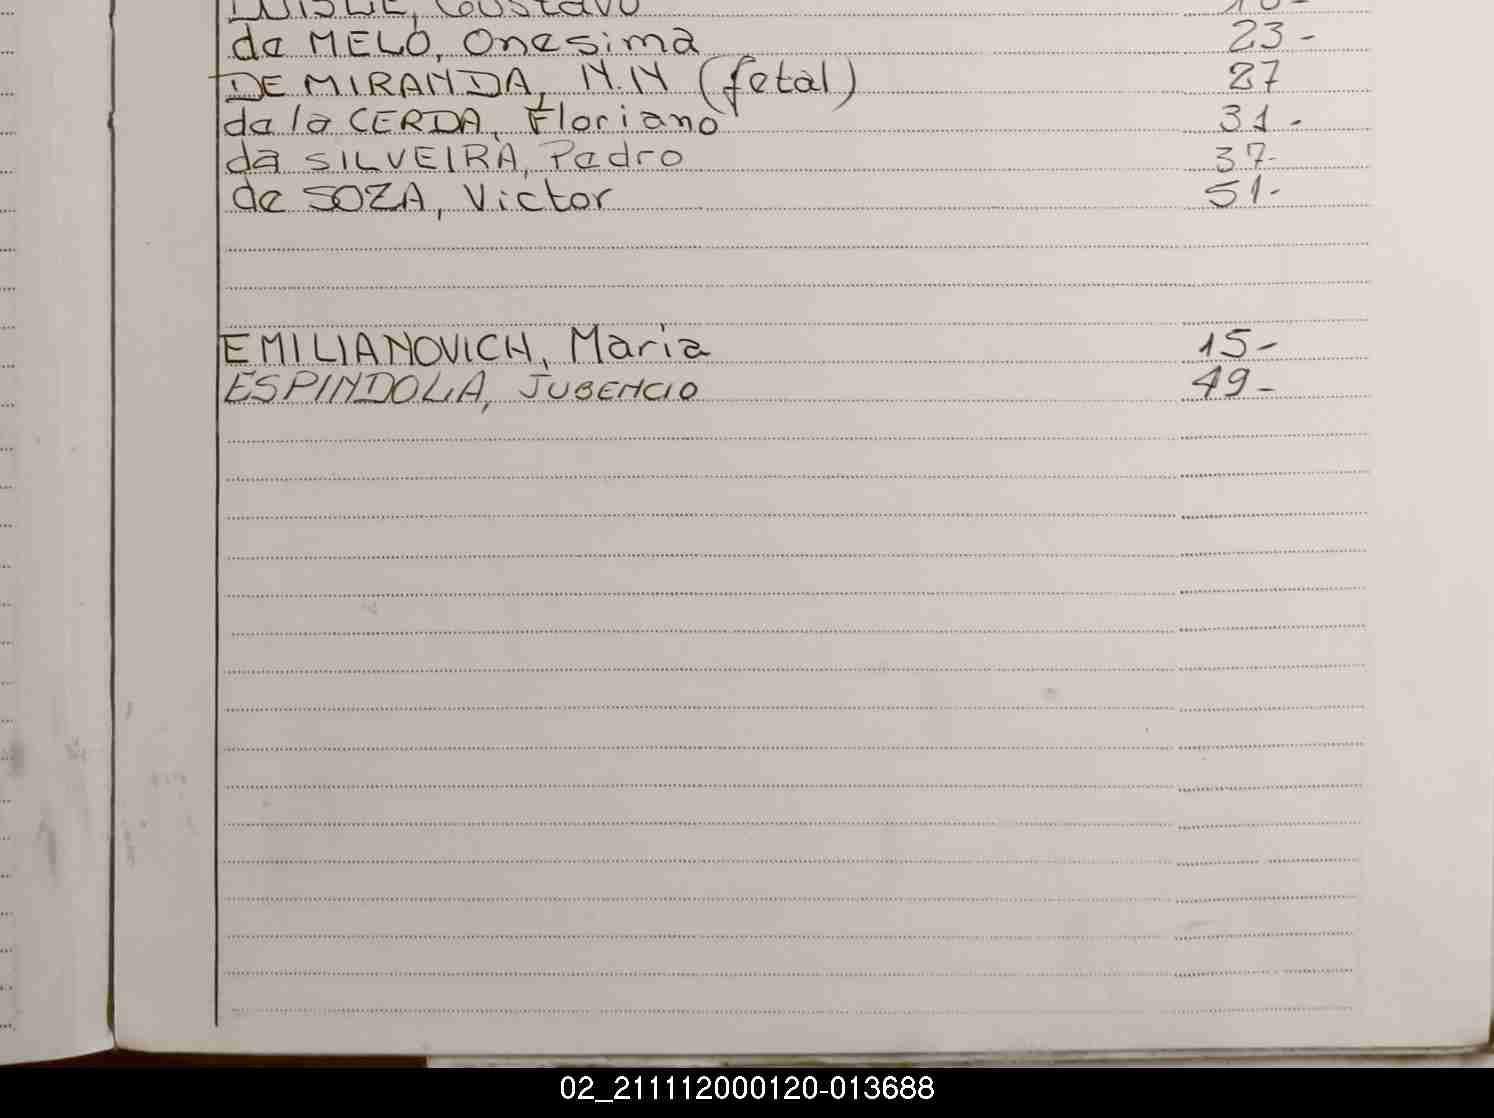 Gustavo
de MELO, Onesima 23-
DE MIRANDA, N.N (fetal) 27
de la CERDA, Floriano 31-
da SILVEIRA, Pedro 37-
de SOZA, Victor 51-
EMILIANOVICH, Maria 15-
ESPINDOLA, JUBENCIO 49-
02_211112000120-013688